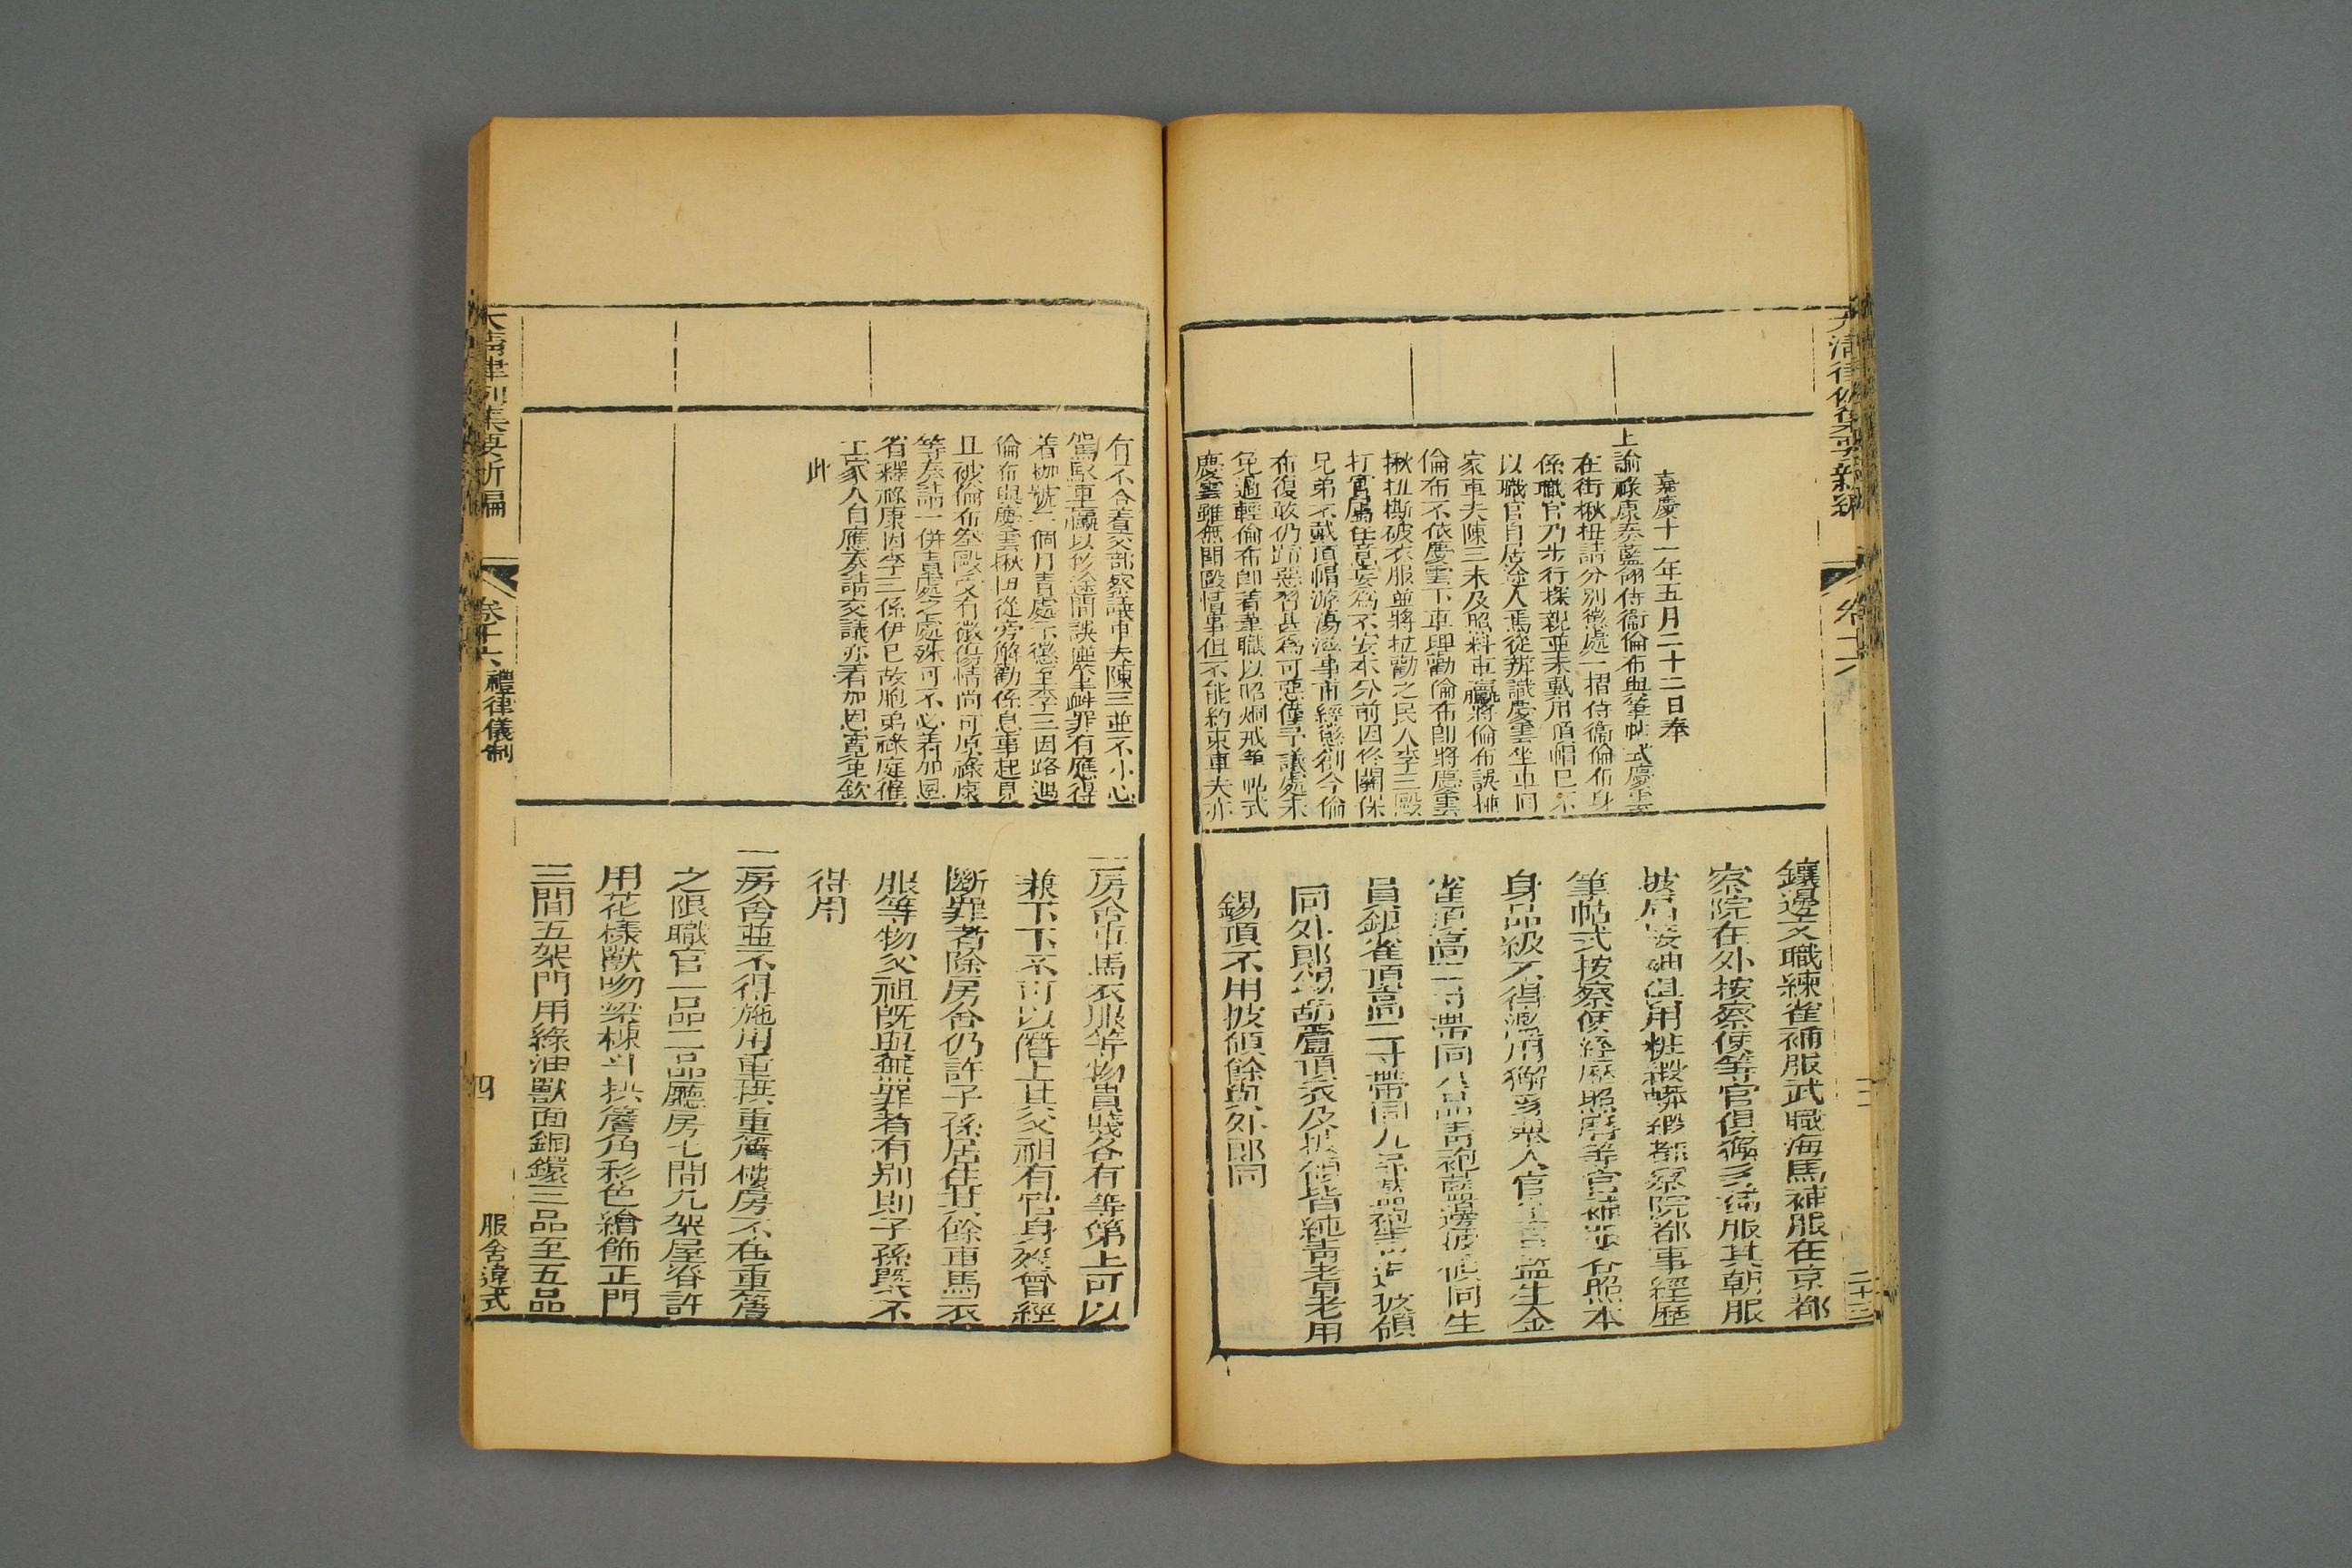 嘉慶十一年五月二十二日奉
上諭祿康奏藍翎侍衞倫布與筆帖式慶雲
在街揪扭請分別懲處一摺侍衞倫布身
係職官乃步行探親並未戴用頂帽已不
以職官自居途人焉從辨識慶雲坐車同
家車夫陳三未及照料車臝將倫布誤撞
倫布不依慶雲下車理勸倫布卽將慶雲
揪扭撕破衣服並將拉勸之民人李三毆
打實屬任意妄為不安本分前因佟關保
兄弟不戴頂帽游蕩滋事甫經懲創今倫
布復敢仍蹈惡習甚為可惡僅予議處未
免過輕倫布卽着革職以昭炯戒筆帖式
慶雲雖無鬬毆情事但不能約束車夫亦
鑲邊文職練雀補服武職海馬補服在京都
察院在外按察使等官俱獬豸補服其朝服
披肩接袖
用粧緞蟒緞都察院都事經歷
筆帖式按察使經歷照磨等官補服各照本
身品級不得濫用獬豸舉人官生貢監生金
雀頂高二寸帶同八品青袍藍邊披領同生
員銀雀頂高二寸帶同九品藍袍青邊披領
同外郎錫葫蘆頂衣及披領皆純青耆老用
錫頂不用披領餘與外郎同
二十三
有不合着交部察議車夫陳三並不小心
駕馭車臝以致途間誤撞釁衅罪有應得
着枷號一個月責處示懲至李三因路過
倫布與慶雲揪扭從旁解勸係息事起見
且被倫布拳毆受有微傷情尚可原祿康
等奏請一併責處之處殊可不必着加恩
省釋祿康因李三係伊已故胞弟祿庭僱
工家人自應奏請交議亦着加恩寬免欽
此
一房舍車馬衣服等物貴賤各有等第上可以
兼下下不可以僭上其父祖有官身歿曾經
斷罪者除房舍仍許子孫居住其餘車馬衣
服等物父祖既與無罪者有別則子孫槩不
得用
一房舍並不得施用重拱重簷樓房不在重簷
之限職官一品二品廳房七間九架屋脊許
用花樣獸吻梁棟斗拱簷角彩色繪飾正門
三間五架門用綠油獸面銅鐶三品至五品
大清律例集要新編 卷十六 禮律儀制 四 服舍違式